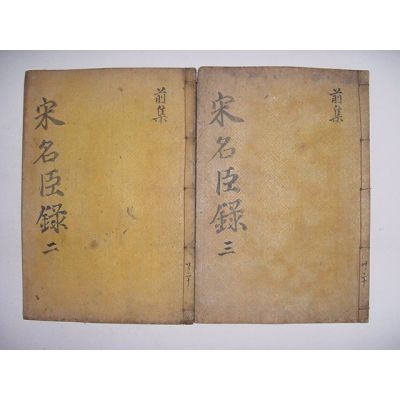 前集
宋名臣録 二
前集
宋名臣録 三